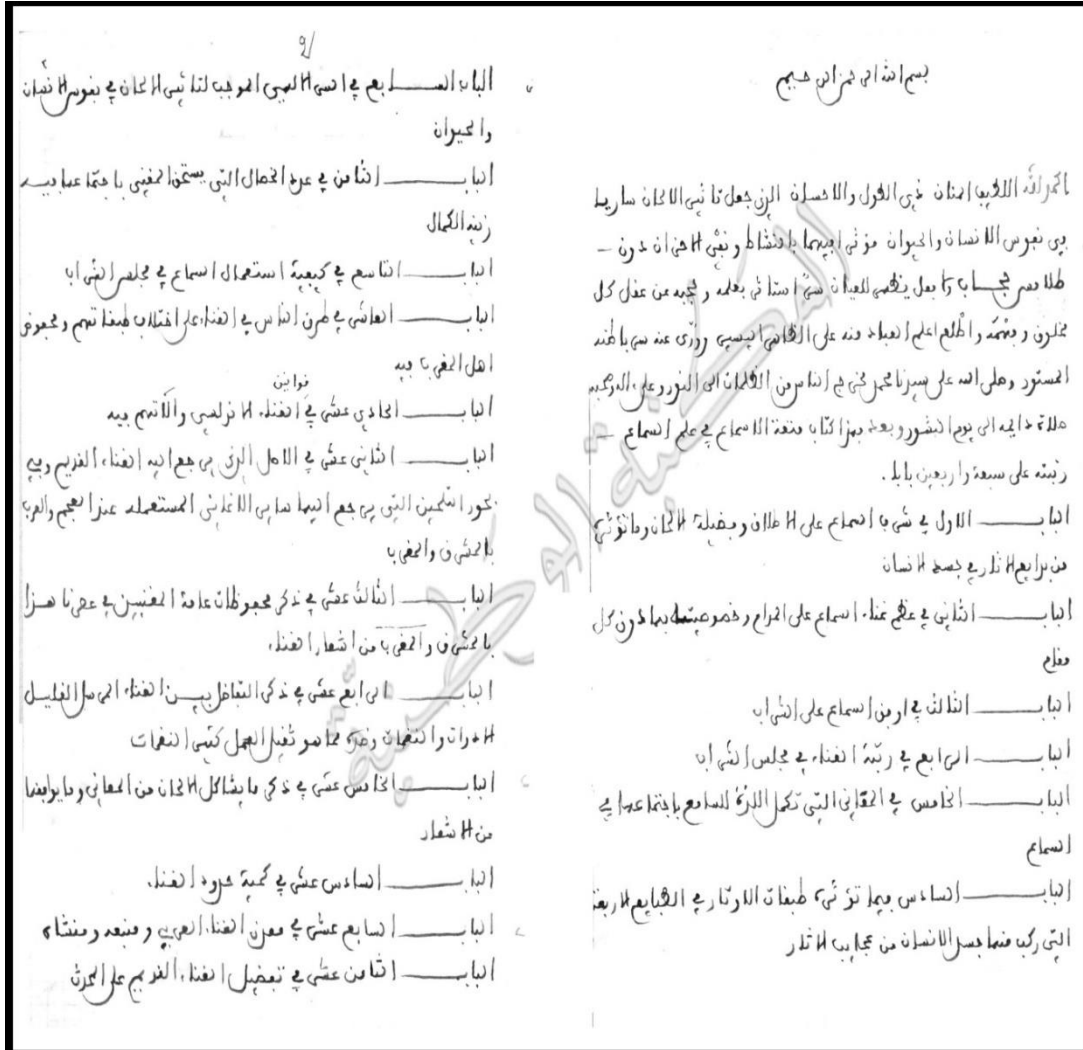 بسم الله الرحمن الرحيم
الحمد لله اللطيف المنان ذي الطول والاحسان الذي جعل تاثير الالحان ساريا
في نفوس الانسان والحيوان مؤثرا فيهما بانبساط ونفي الاحزان دون
ملامس بحساب را بفعل يظهر للعيان سر استاثر بعلمه وحجبه عن عقل كل
مخلوق وفهمه واطلع اعلم العباد منه على الظاهر اليسير وورى عنه سر باطنه
المستور وصلى الله على سيدنا محمد مخرج الناس من الظلمات الى النور وعلى اله وصحبه
صلاة دايمه الى يوم النشور وبعد فهذا كتاب متعة الاسماع في علم السماع
رتبته على سبعة واربعين بابا.
الباب الاول في شرب السماع على الاطلاق وفضيلة الالحان وما تؤثره
من بدايع الاثار في جسد الانسان
الباب الثاني في عظم غناء السماع على المدام وخصوصيته بها دون كل
مقام
الباب الثالث في اوقات السماع على الشراب
الباب الرابع في رتبة الغناء في مجلس الشراب
الباب الخامس في المعاني التي تكمل اللذة للسامع باجتماعها في
السماع
الباب السادس فيما تؤثره طبقات الاوتار في الطبايع الاربعة
التي ركب منها جسد الانسان من عجايب الاثار
2
الباب السابع في السر الالهي الموجب لتاثير الالحان في نفوس الانسان
والحيوان
الباب الثامن في عدد الخصال التي يستحق المغني باجتماعها فيه
رتبة الكمال
الباب التاسع في كيفية استعمال السماع في مجلس الشراب
الباب العاشر في طرق الناس في الغناء على اختلاف طبقاتهم ومحفوض
اهل المغرب فيه
الباب الحادي عشر في قوانين الغناء الاندلسي والاتهم فيه
الباب الثاني عشر في الاصل الذي يرجع اليه الغناء القديم وفي
بحور التلحين التي يرجع اليها ساير الاغاني المستعمله عند العجم والعرب
بالمشرق والمغرب
الباب الثالث عشر في ذكر محفوظات عامة المغنيين في عصرنا هذا
بالمشرق والمغرب من اشعار الغناء
الباب الرابع عشر في ذكر التفاضل بين الغناء المرسل القليل
الادوات والنغمات وضده مما هو ثقيل العمل كثير النغمات
الباب الخامس عشر في ذكر ما يشاكل الالحان من المعاني وما يوافقها
من الاشعار
الباب السادس عشر في كمية حدود الغناء
الباب السابع عشر في معدن الغناء العربي ومنبعه ومنشاه
الباب الثامن عشر في تفضيل الغناء القديم على المحدث